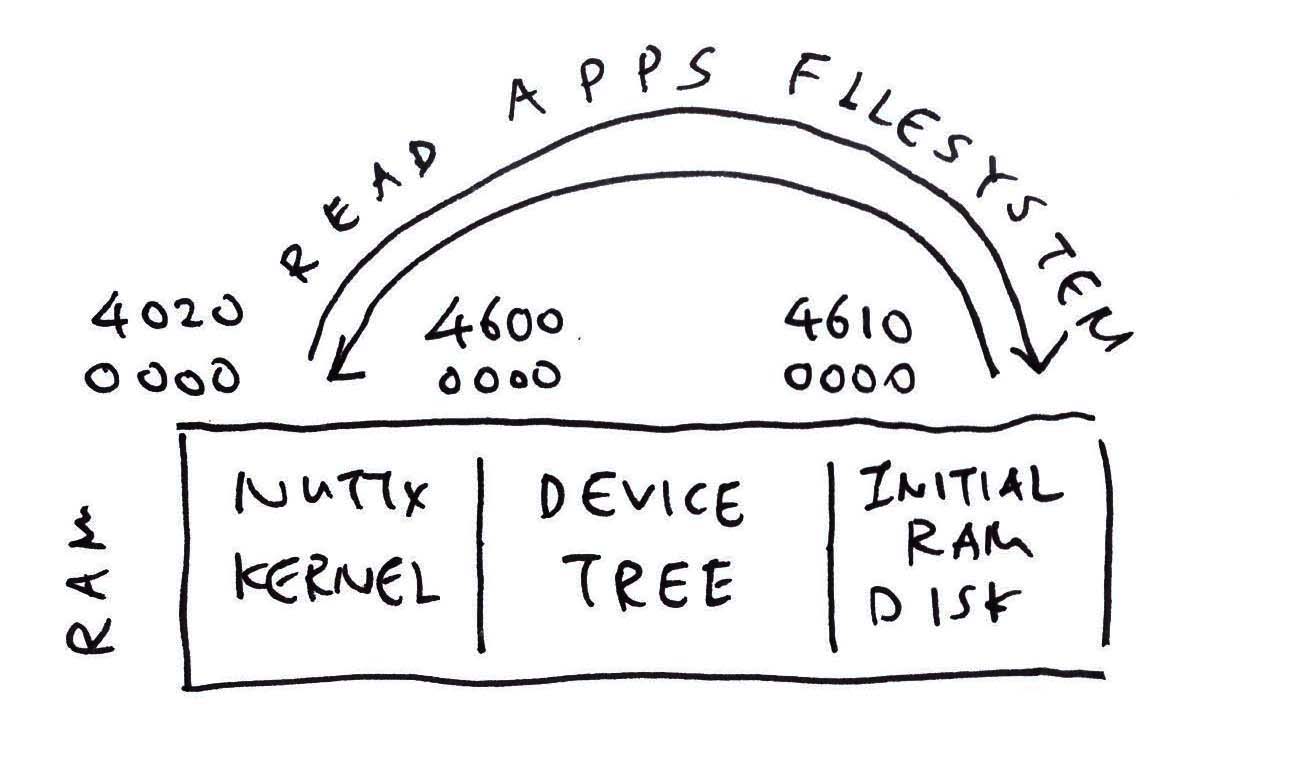 READ APPS FILESYSTEM
4020
0000
4600
0000
4610
0000
RAM
NUTTX
KERNEL
DEVICE
TREE
INITIAL
RAM
DISK